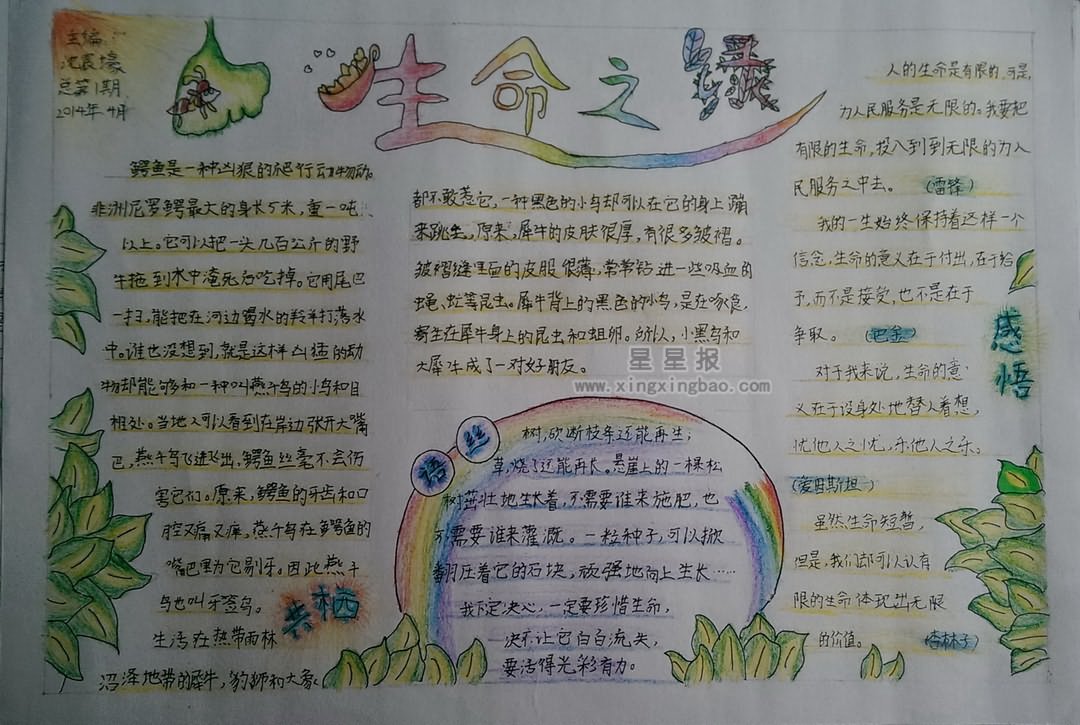 主编:
沈辰壕
总第1期
2014年4月
生命之
鳄鱼是一种凶狠的爬行动物。
非洲尼罗鳄最大的身长5米,重一吨
以上。它可以把一头几百公斤的野
牛拖到水中淹死后吃掉。它用尾巴
一扫,能把在河边喝水的羚羊打落水
中。谁也没想到,就是这样凶猛的动
物却能够和一种叫燕千鸟的小鸟和目
相处。当地人可以看到在岸边张开大嘴
巴,燕千鸟飞进飞出,鳄鱼丝毫不会伤
害它们。原来,鳄鱼的牙齿和口
腔又痛又痒,燕千鸟在鳄鱼的
嘴巴里为它剔牙。因此燕千
鸟也叫牙签鸟。
生活在热带雨林
沼泽地带的犀牛,豹狮和大象
共栖
都不敢惹它,一种黑色的小鸟却可以在它的身上蹦
来跳去。原来,犀牛的皮肤很厚,有很多皱褶。
皱褶缝里面的皮服很薄,常常钻进一些吸血的
蝇、虻等昆虫。犀牛背上的黑色的小鸟,是在啄食
寄生在犀牛身上的昆虫和蛆卵。所以,小黑鸟和
大犀牛成了一对好朋友。
星星报
www.xingxingbao.com
语丝
树,砍断枝条还能再生;
草,烧了还能再长。悬崖上的一棵松
树茁壮地生长着,不需要谁来施肥,也
不需要谁来灌溉。一粒种子,可以掀
翻压着它的石块,顽强地向上生长……
我下定决心,一定要珍惜生命,
决不让它白白流失,
要活得光彩有力。
人的生命是有限的,可是,
为人民服务是无限的。我要把
有限的生命,投入到到无限的为人
民服务之中去。(雷锋)
我的一生始终保持着这样一个
信念,生命的意义在于付出,在于给
予,而不是接受,也不是在于
争取。(巴金)
对于我来说,生命的意
义在于设身处地替人着想,
忧他人之忧,乐他人之乐。
(爱因斯坦)
虽然生命短暂,
但是,我们却可以认有
限的生命体现出无限
的价值。(杏林子)
感悟